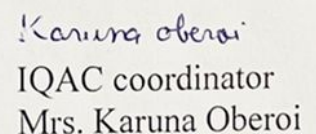 Karuna oberoi
IQAC coordinator
Mrs. Karuna Oberoi